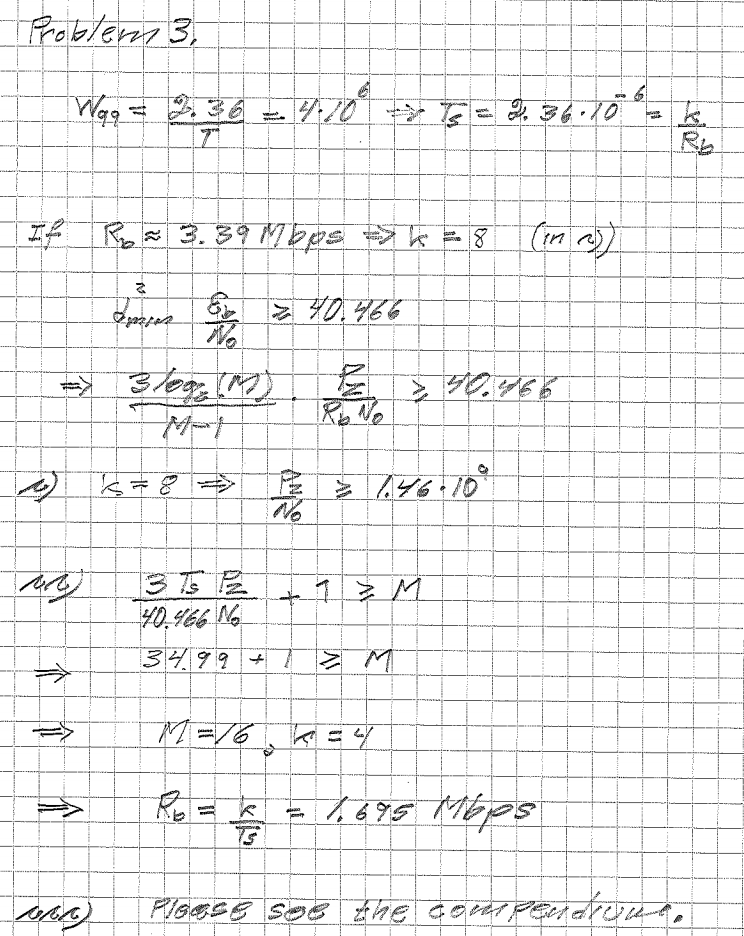 Problem 3.
W99 = 2.36/T = 4·10^6 => Ts = 2.36·10^-6 = k/Rb
If Rb ≈ 3.39 Mbps => k = 8 (in i))
d²min Eb/N0 ≥ 40.466
=> 3 log2(M)/(M-1) · Pz/(Rb N0) ≥ 40.466
i) k = 8 => Pz/N0 ≥ 1.46·10^9
ii) 3 Ts Pz/(40.466 N0) + 1 ≥ M
=> 34.99 + 1 ≥ M
=> M = 16, k = 4
=> Rb = k/Ts = 1.695 Mbps
iii) Please see the compendium.